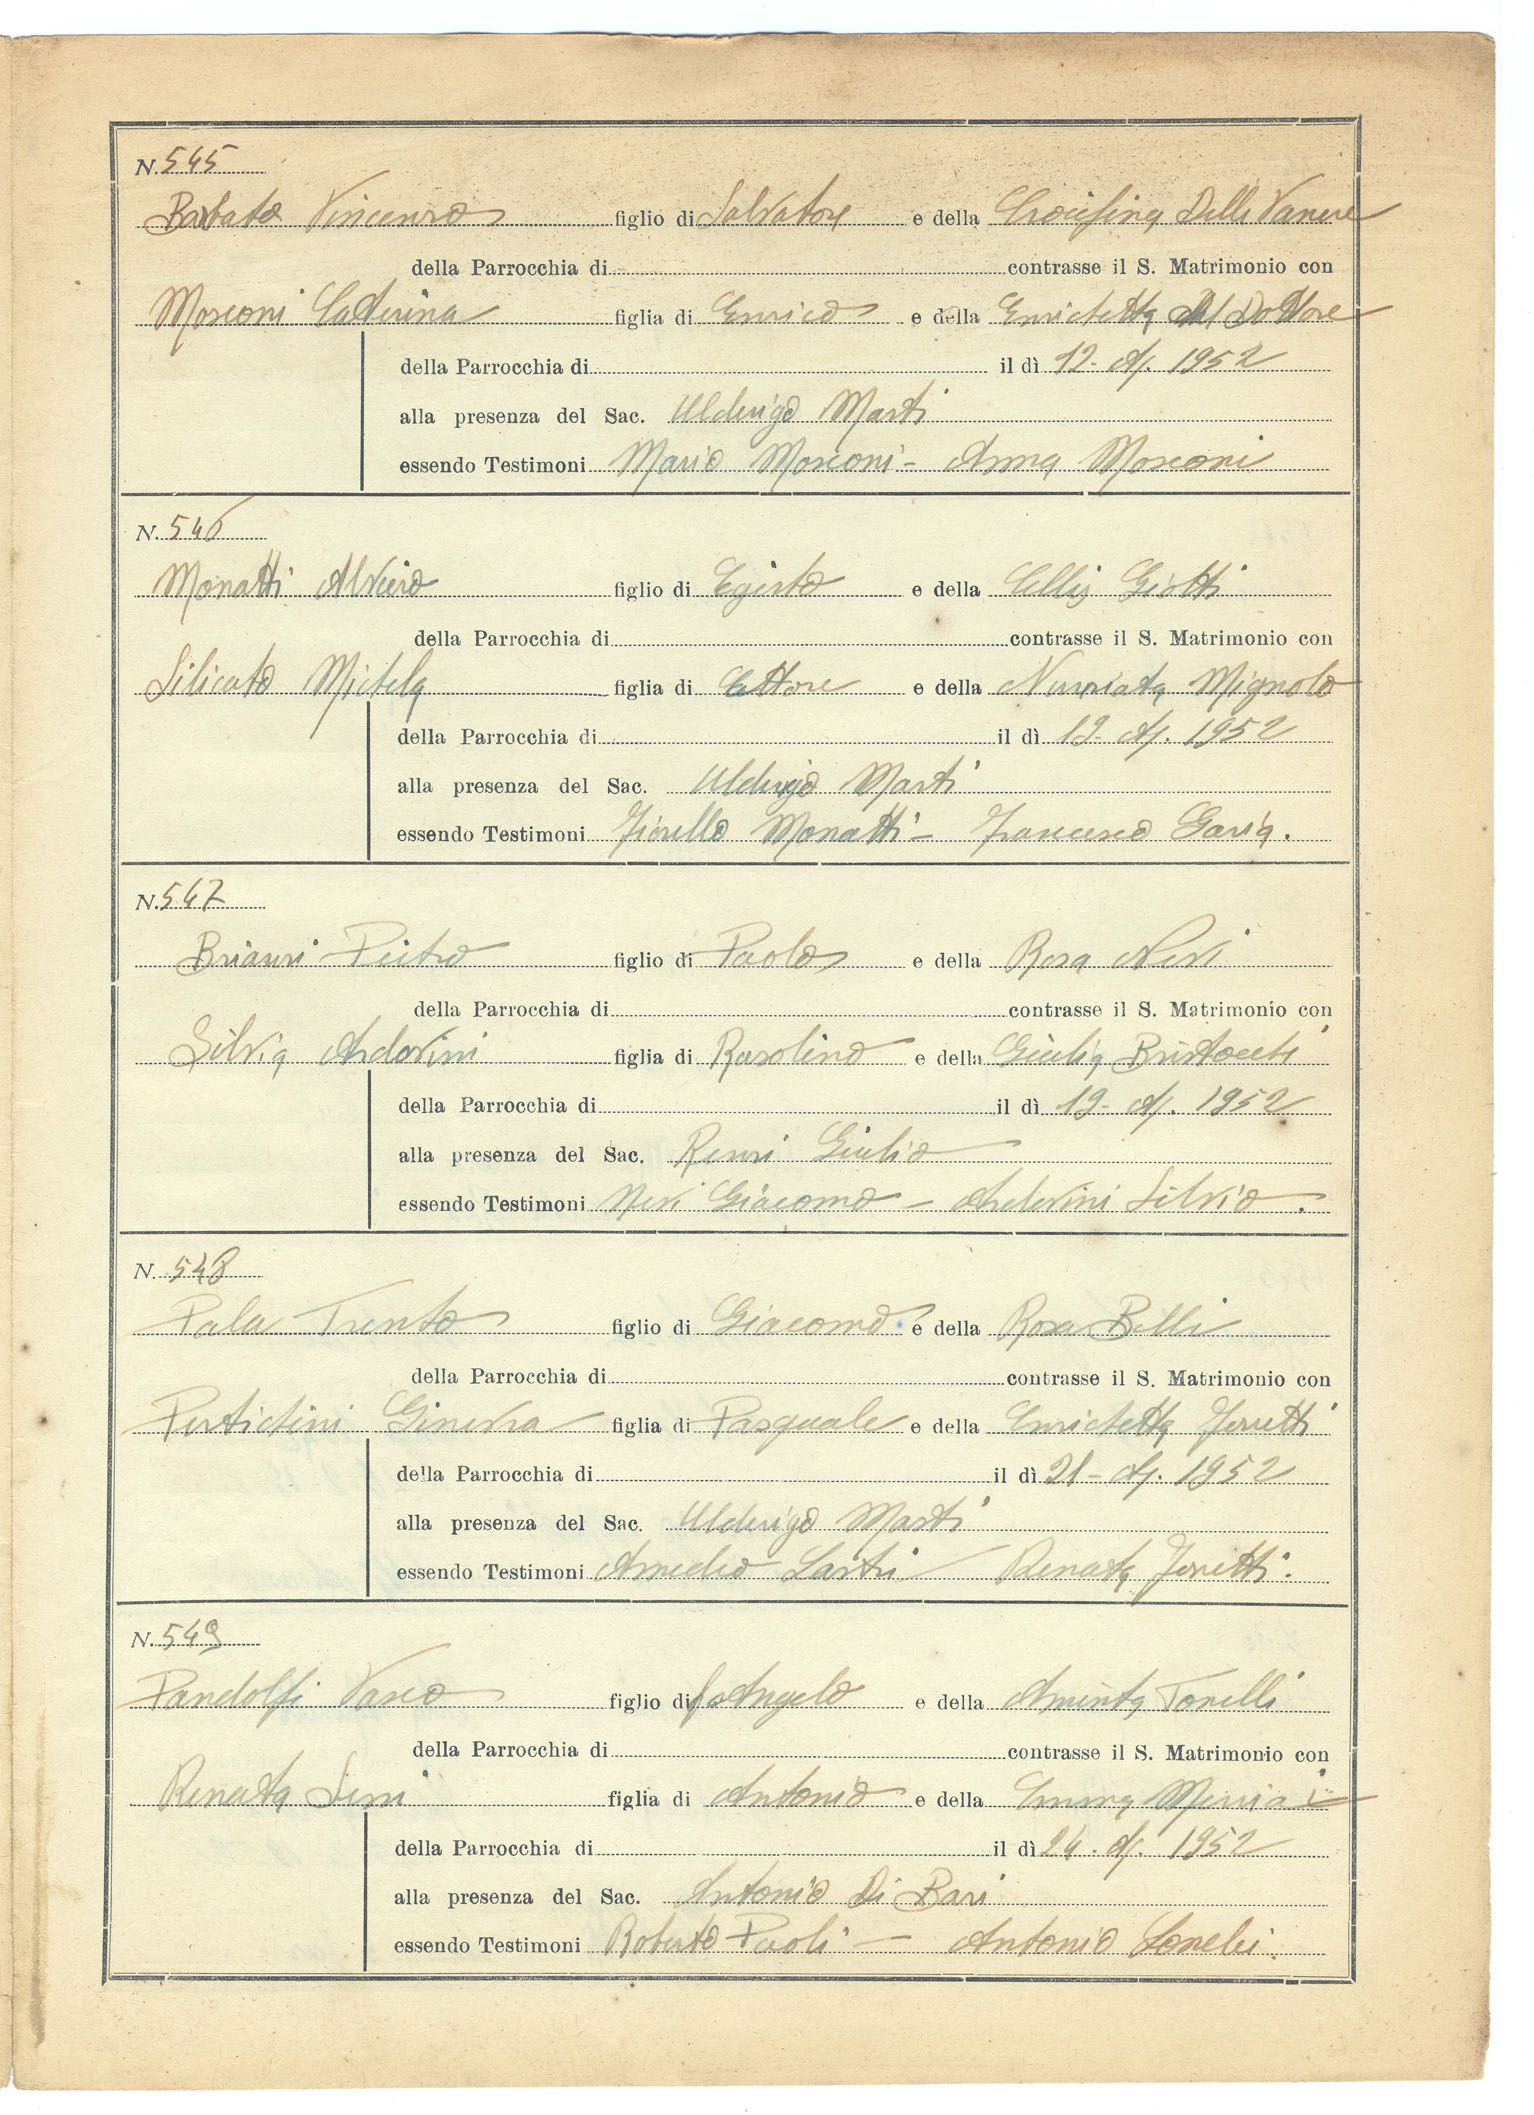 N. 545
Barbato Vincenzo figlio di Salvatore e della Crocifina Delli Vanere
della Parrocchia di contrasse il S. Matrimonio con
Mosconi Caterina figlia di Enrico e della Enrichetta Del Dottore
della Parrocchia di il dì 12- Ap. 1952
alla presenza del Sac. Ulderigo Marti
essendo Testimoni Mario Mosconi - Anna Mosconi
N. 546
Monatti Alviero figlio di Egisto e della Giotti
della Parrocchia di contrasse il S. Matrimonio con
Silicato Michela figlia di Ettore e della Nunziata Mignolo
della Parrocchia di il dì 19- Ap. 1952
alla presenza del Sac. Ulderigo Marti
essendo Testimoni Fiorello Monatti - Francesco Garia.
N. 547
Brianzi Pietro figlio di Paolo e della Rosa Neri
della Parrocchia di contrasse il S. Matrimonio con
Silvia Ardovini figlia di Rasolino e della Giulia
della Parrocchia di il dì 19- Ap. 1952
alla presenza del Sac. Renzi Giulio
essendo Testimoni Neri Giacomo - Ardovini Silvio.
N. 548
Pala Trento figlio di Giacomo e della Rosa Belli
della Parrocchia di contrasse il S. Matrimonio con
Pertichini Ginevra figlia di Pasquale e della Enrichetta Ferretti
della Parrocchia di il dì 21- Ap. 1952
alla presenza del Sac. Ulderigo Marti
essendo Testimoni Amedeo Sartri Renata Ferretti.
N. 549
Pandolfi Vasco figlio di Angelo e della Aminta Tonelli
della Parrocchia di contrasse il S. Matrimonio con
Renata figlia di Antonio e della Emma
della Parrocchia di il dì 24. Ap. 1952
alla presenza del Sac. Antonio Di Bari
essendo Testimoni Roberto Paoli - Antonio